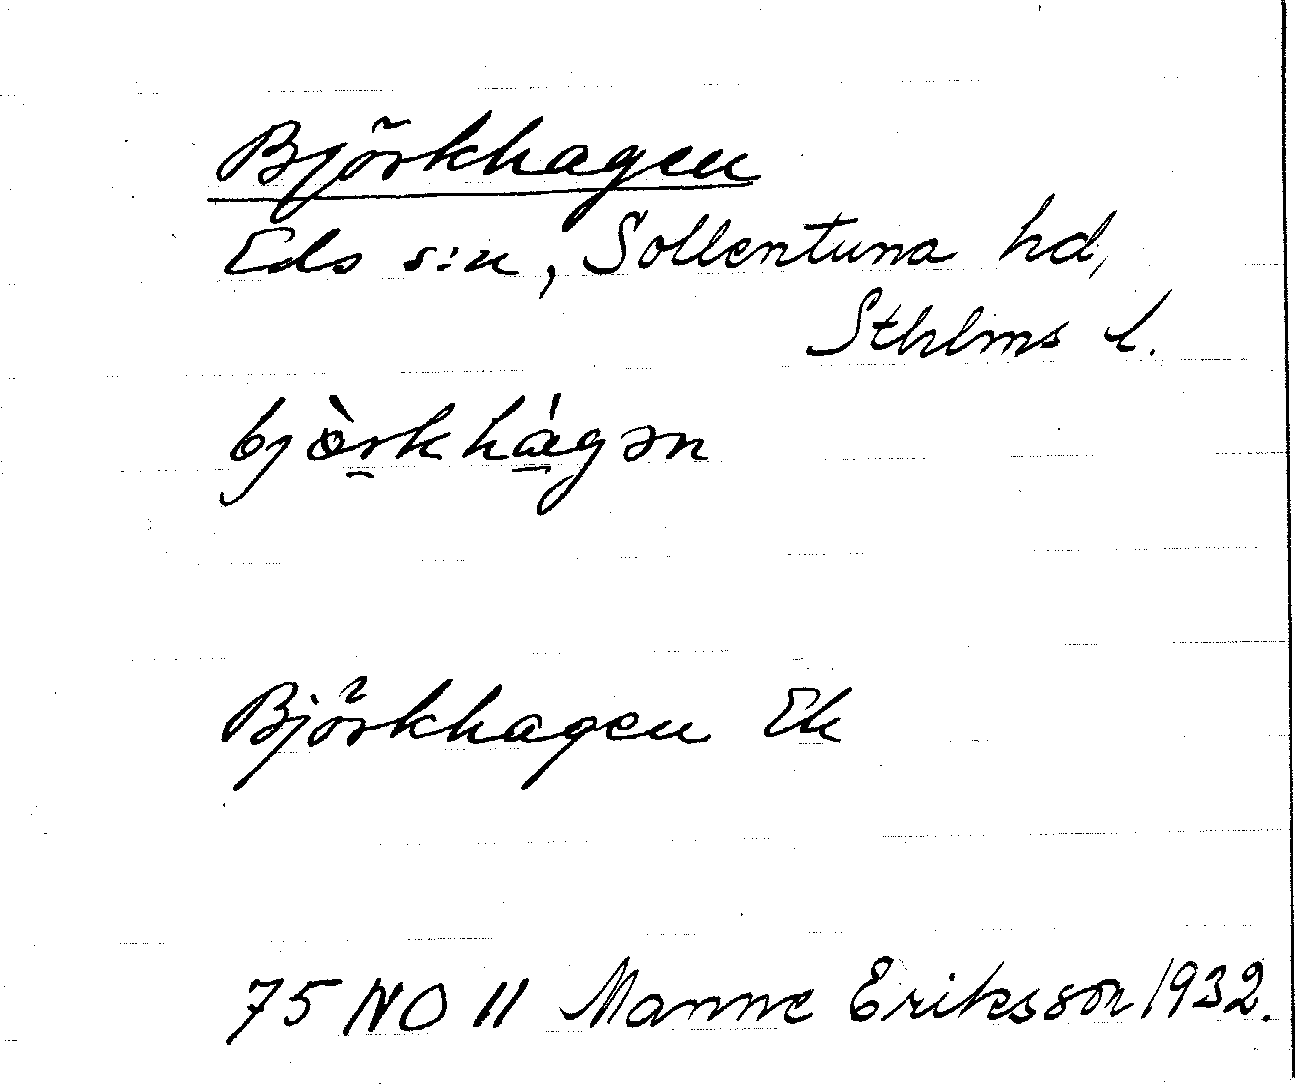 Björkhagen
Eds s:n, Sollentuna hd,
Sthlms l.
bjòrkhágən
Björkhagen Ek
75 NO 11 Manne Eriksson 1932.